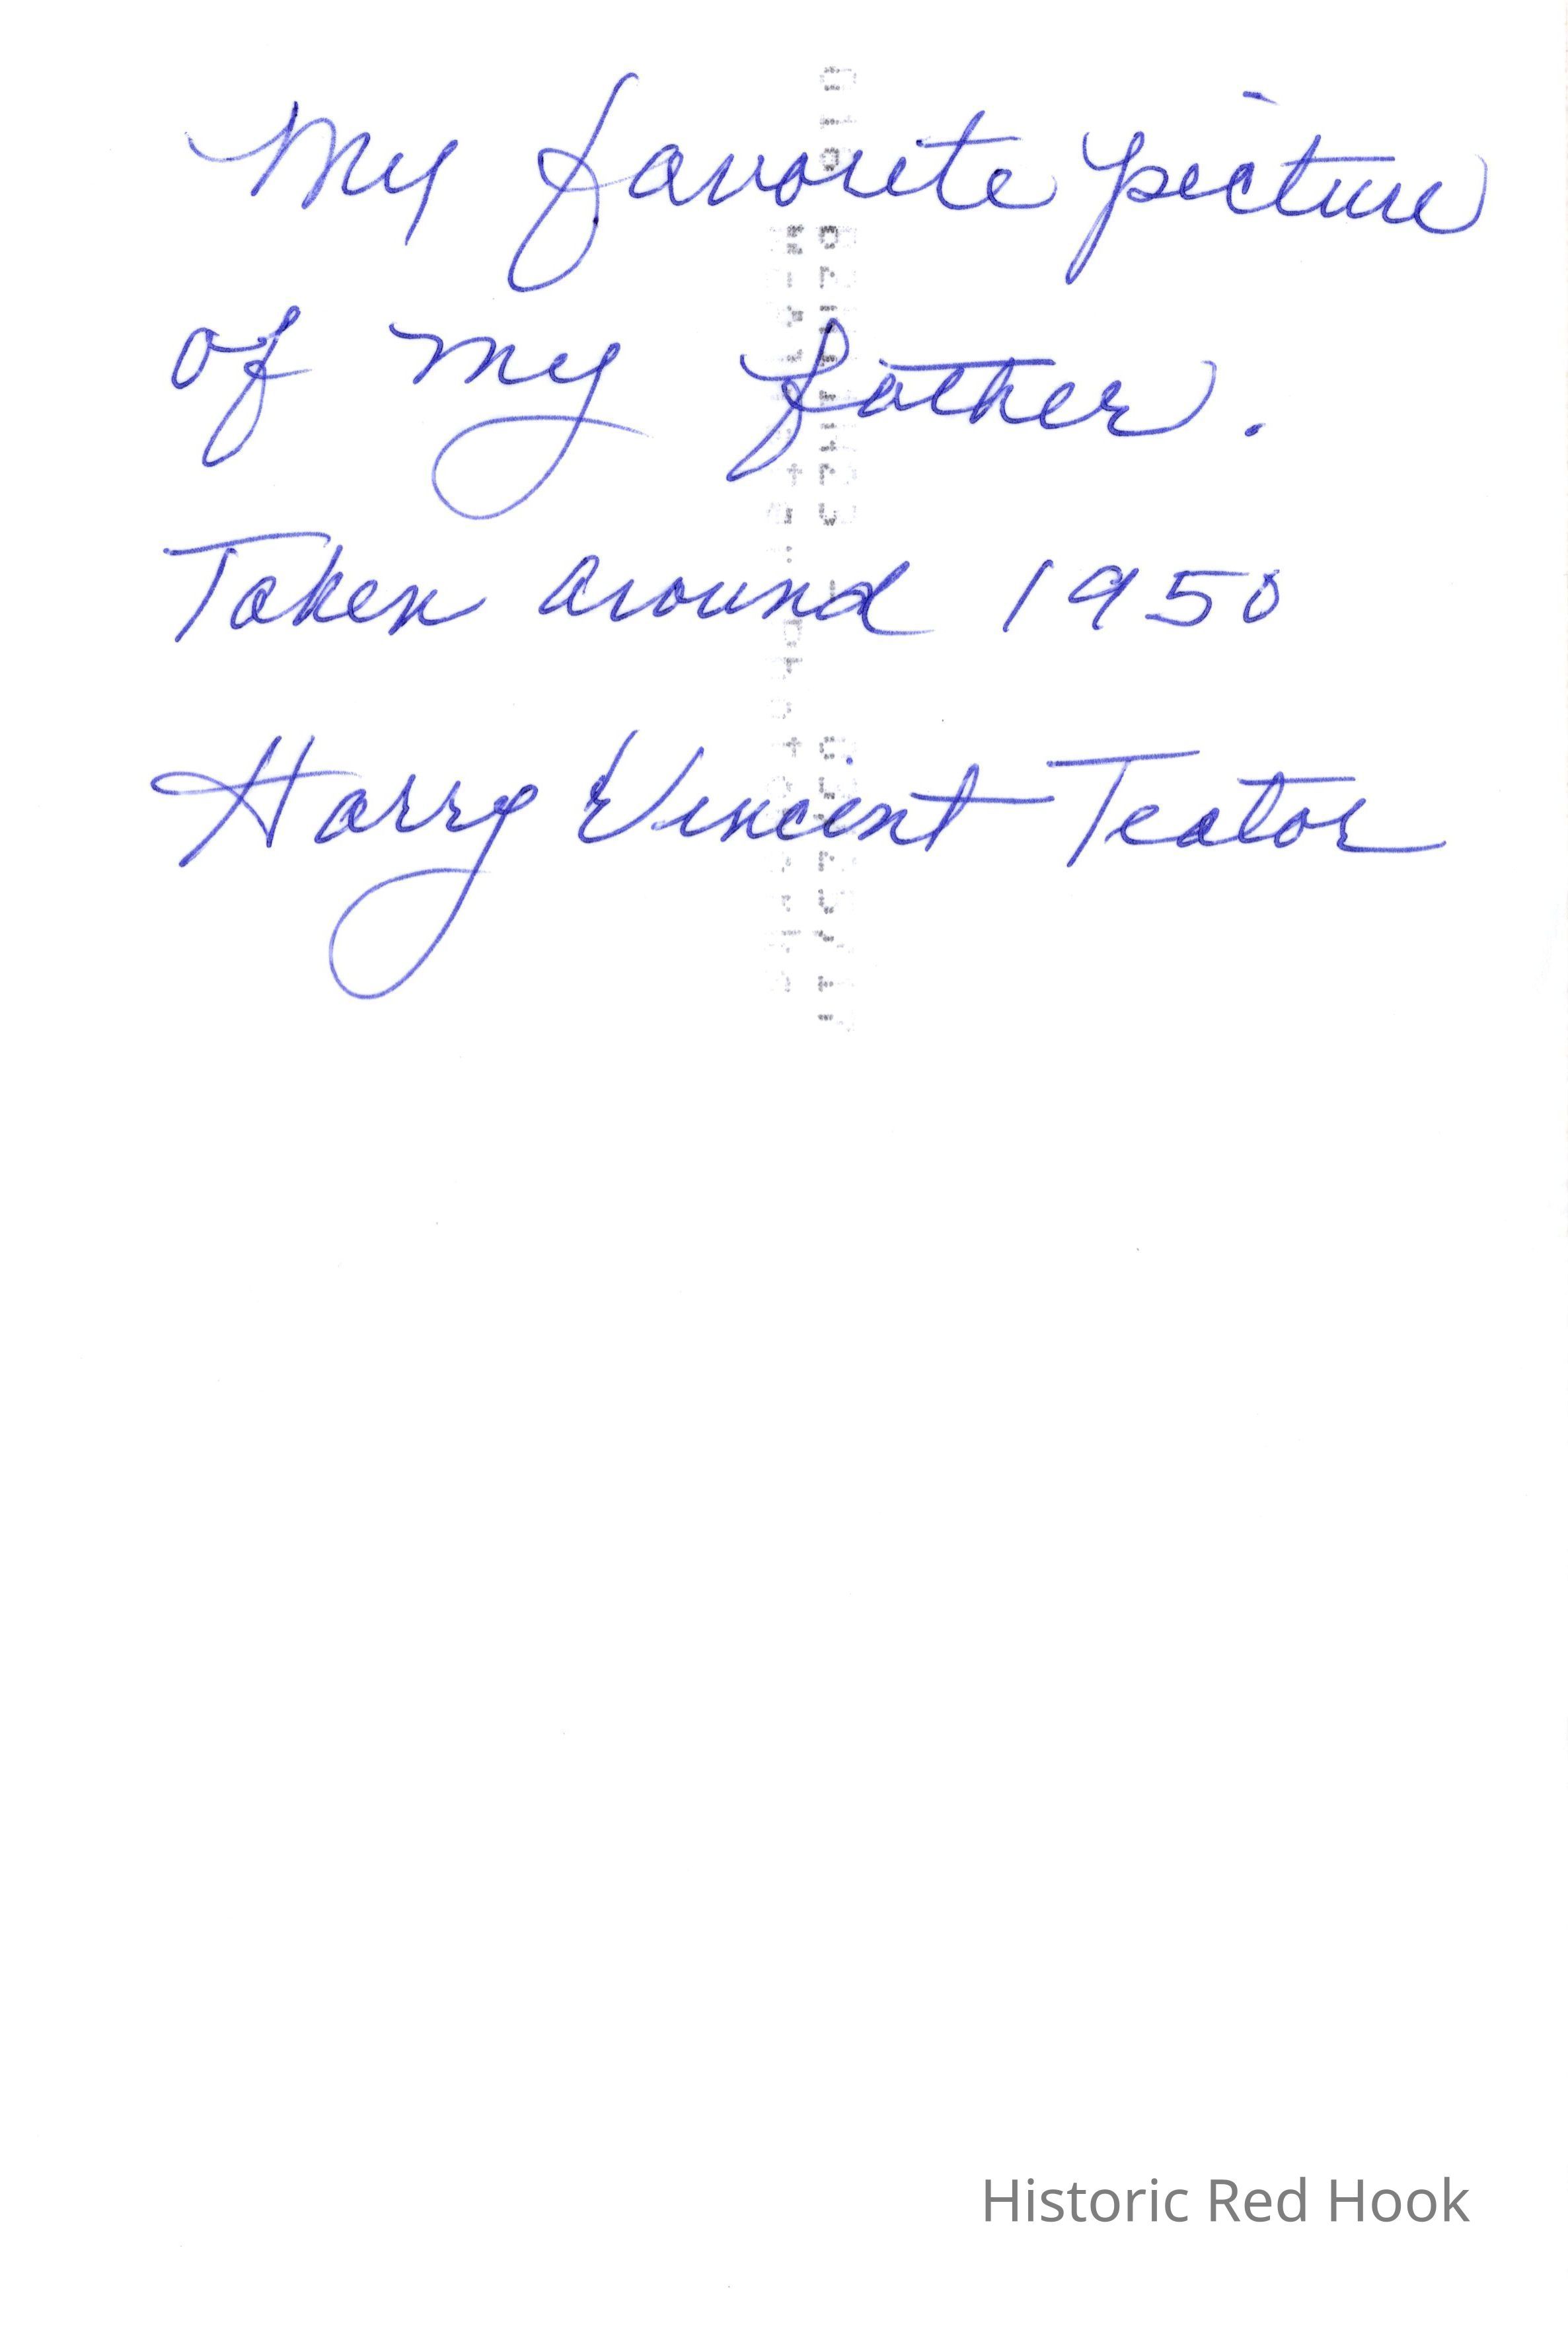 My favorite picture
of my father.
Taken around 1950
Harry Vincent Teator
Historic Red Hook